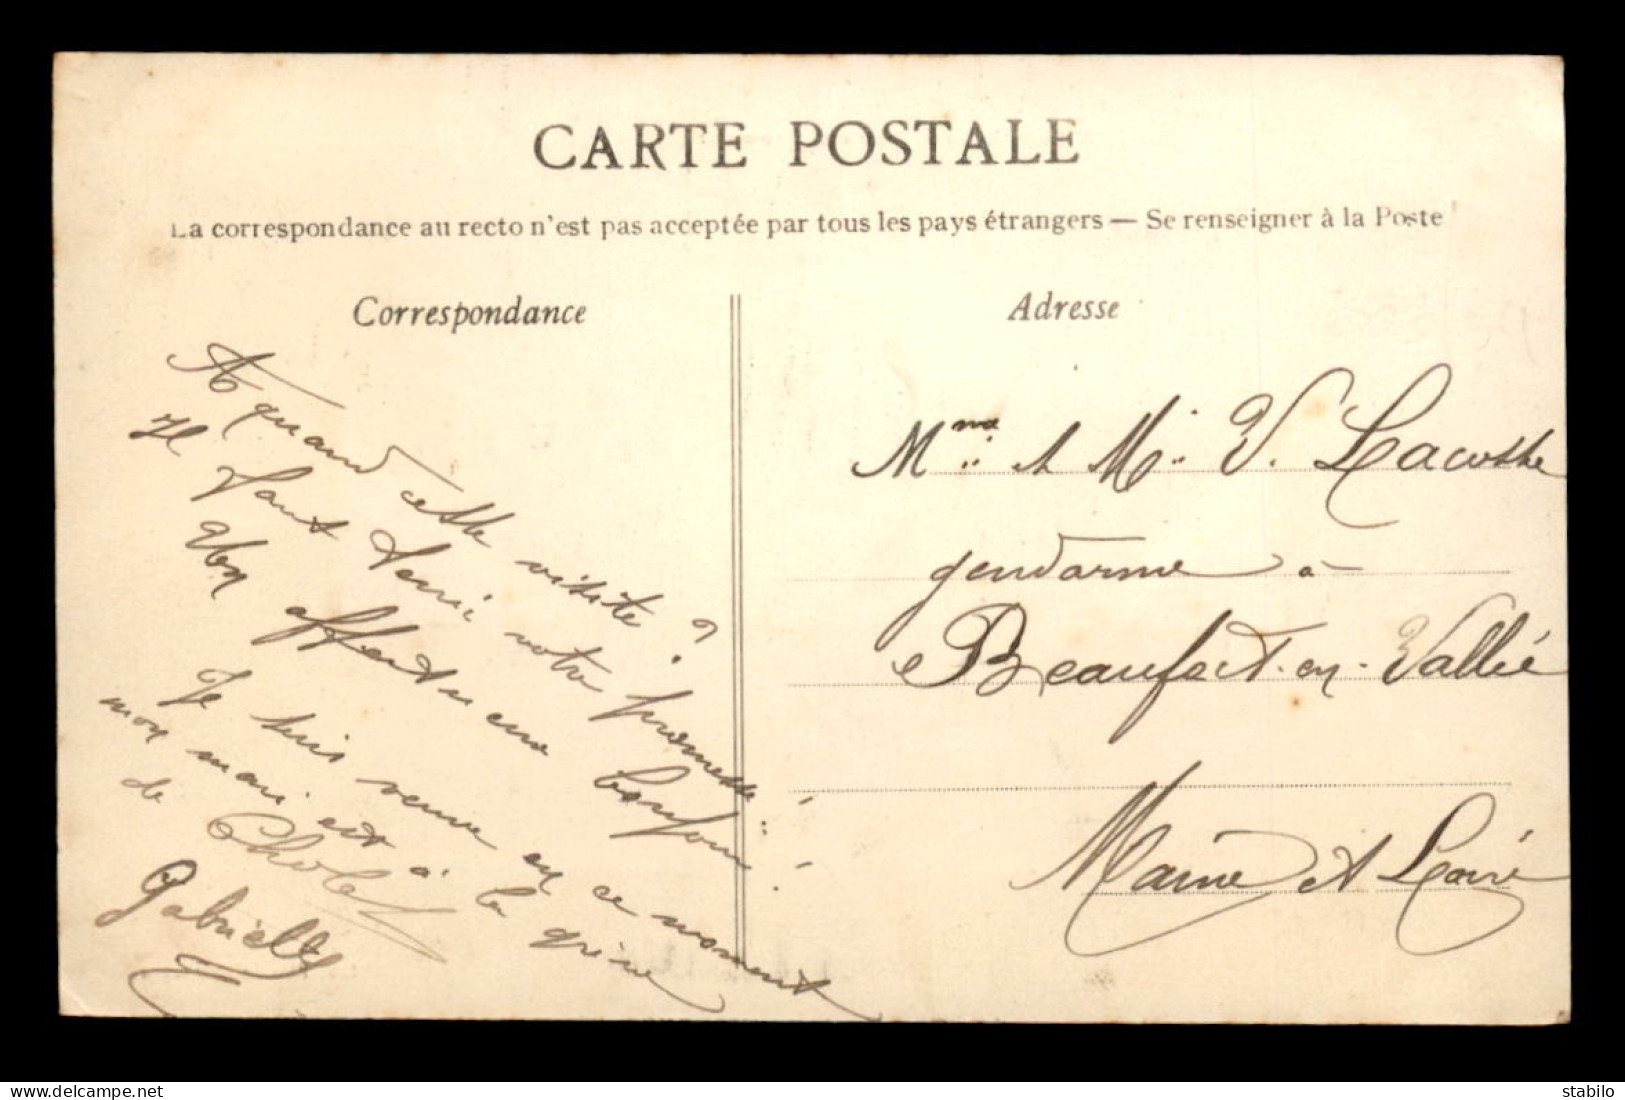 CARTE POSTALE
La correspondance au recto n'est pas acceptée par tous les pays étrangers — Se renseigner à la Poste
Correspondance
A quand cette visite ?
Il faut tenir votre promesse !
Bien affectueux bonjour !
Je suis veuve en ce moment
mon mari est à la grève
de Cholet
Gabrielle
Adresse
Mme et Mr V. Lacoste
gendarme à
Beaufort-en-Vallée
Maine et Loire
www.delcampe.net
stabilo